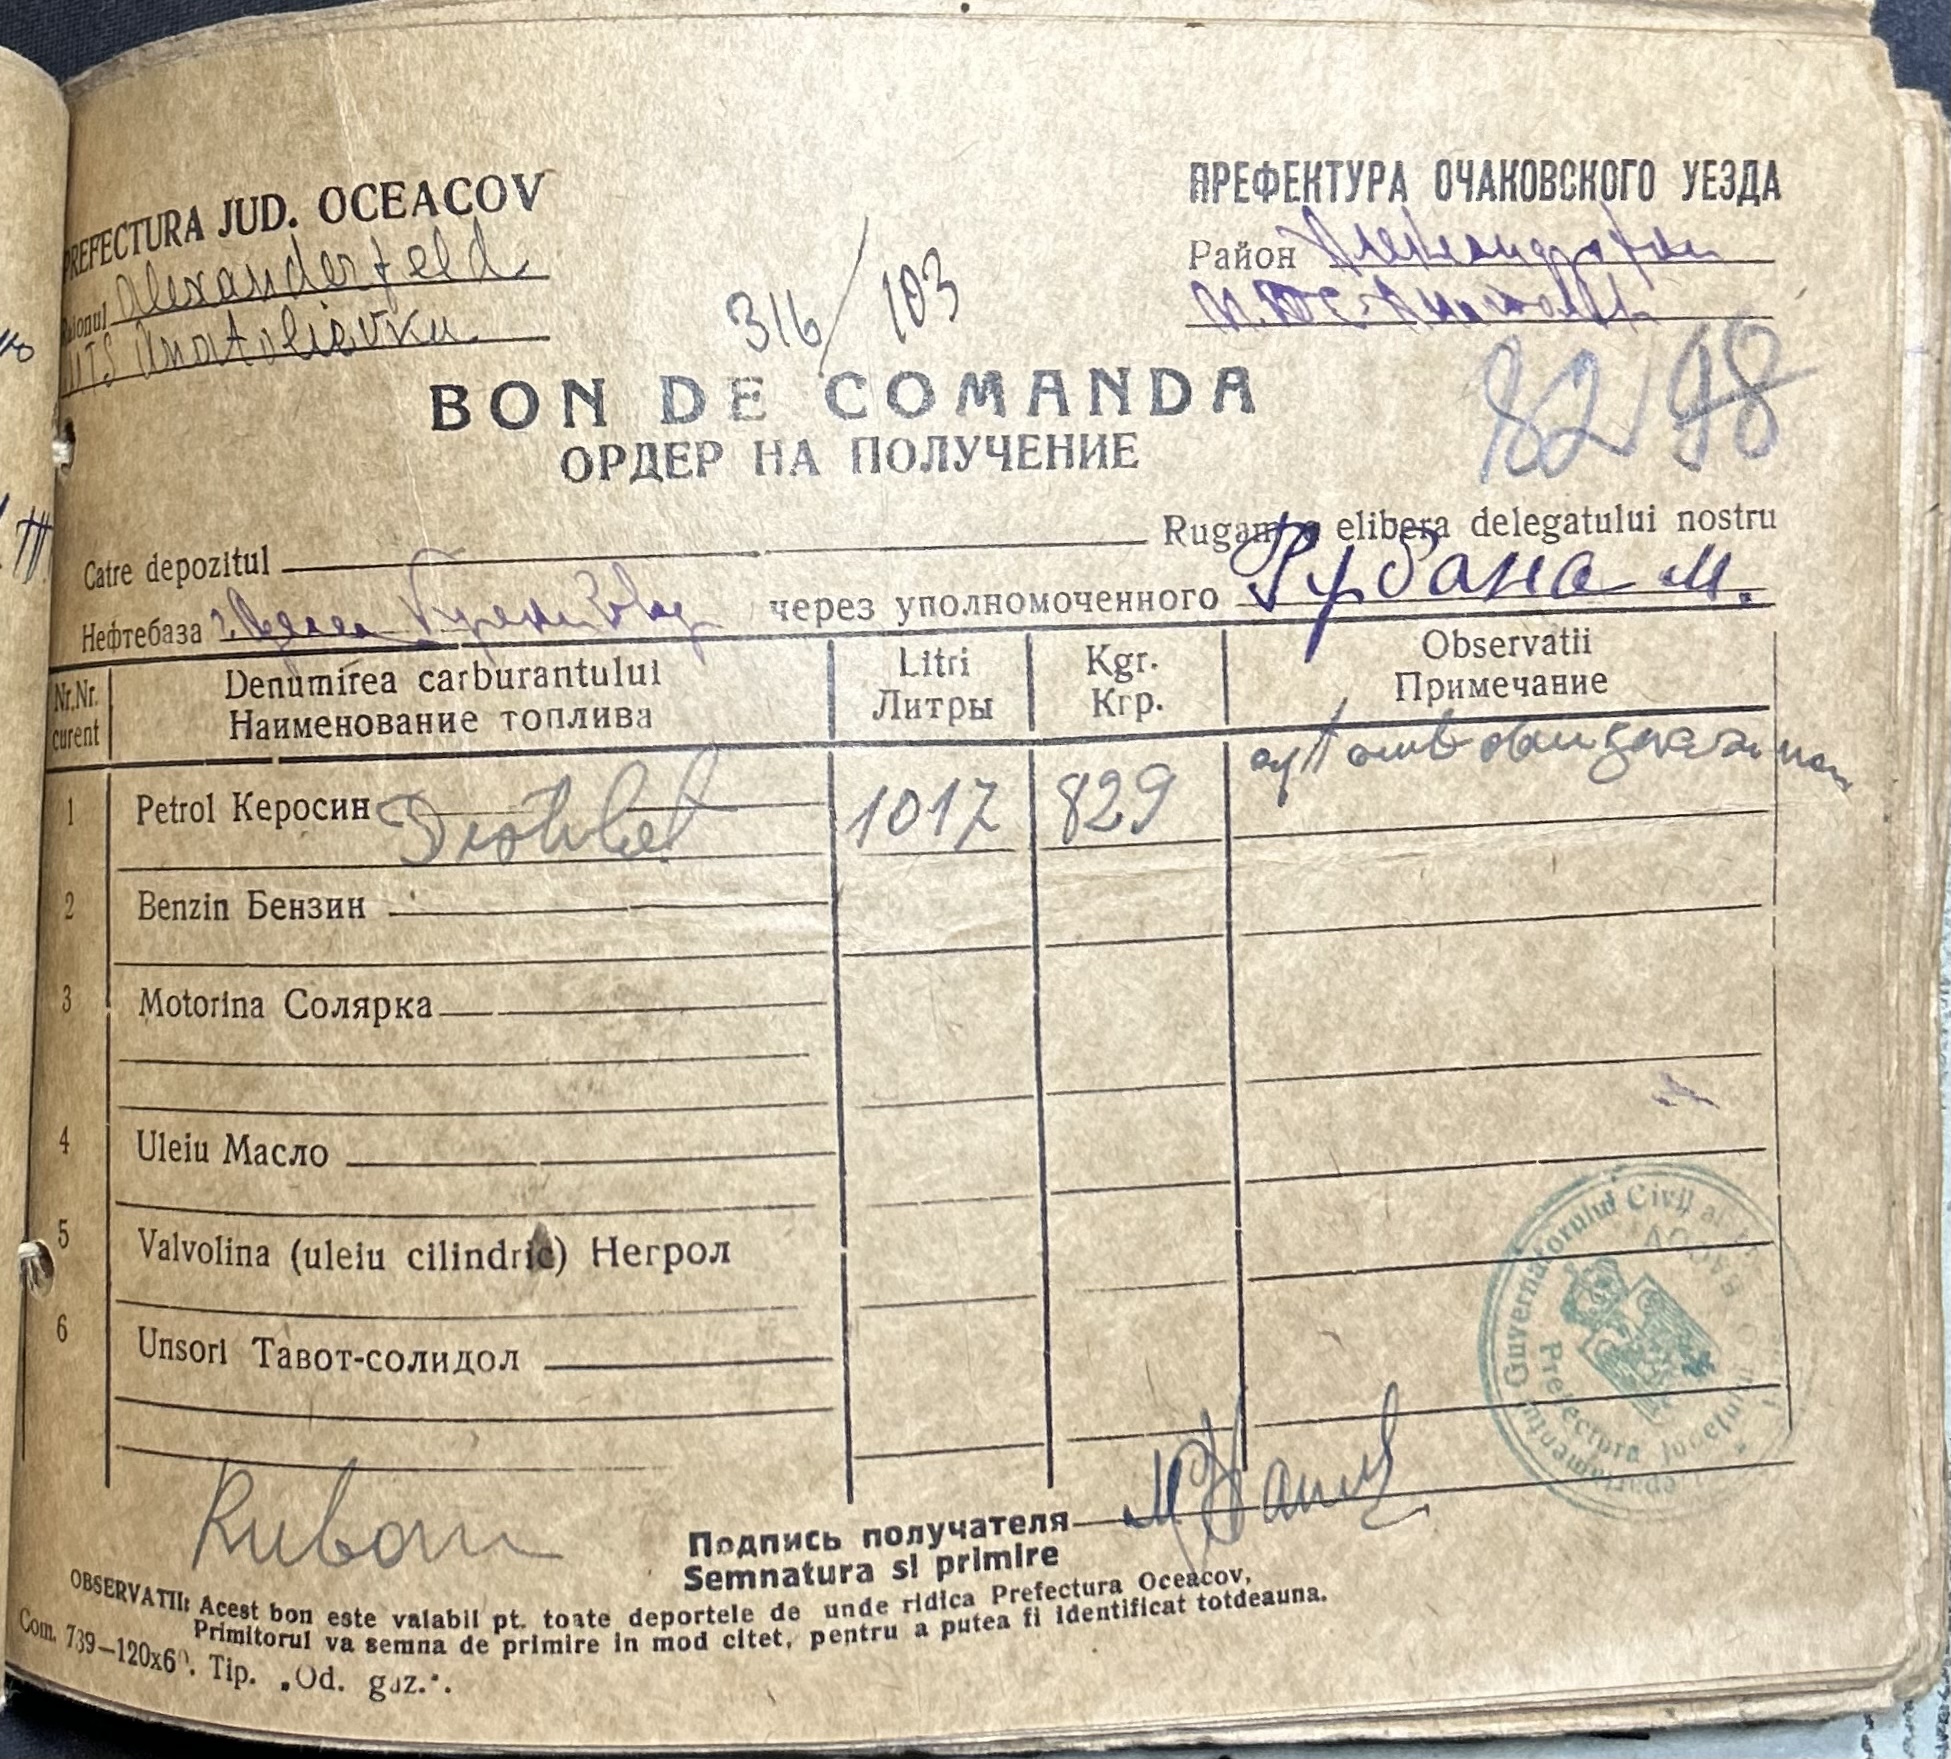 PREFECTURA JUD. OCEACOV
Raionul Alexanderfeld
MTS Anatolievka
316/103
ПРЕФЕКТУРА ОЧАКОВСКОГО УЕЗДА
Район
82 98
BON DE COMANDA
ОРДЕР НА ПОЛУЧЕНИЕ
Catre depozitul Rugam a elibera delegatului nostru
Нефтебаза через уполномоченного Рубана М.
Nr.Nr. curent
Denumirea carburantului
Наименование топлива
Litri
Литры
Kgr.
Кгр.
Observatii
Примечание
1 Petrol Керосин 1017 829
2 Benzin Бензин
3 Motorina Солярка
4 Uleiu Масло
5 Valvolina (uleiu cilindric) Негрол
6 Unsori Тавот-солидол
Guvernatorului Civil al
Prefectura Judeţului
Ruban
Подпись получателя
Semnatura si primire
OBSERVATII: Acest bon este valabil pt. toate deportele de unde ridica Prefectura Oceacov,
Primitorul va semna de primire in mod citet, pentru a putea fi identificat totdeauna.
Com. 739—120x60. Tip. „Od. gaz.".